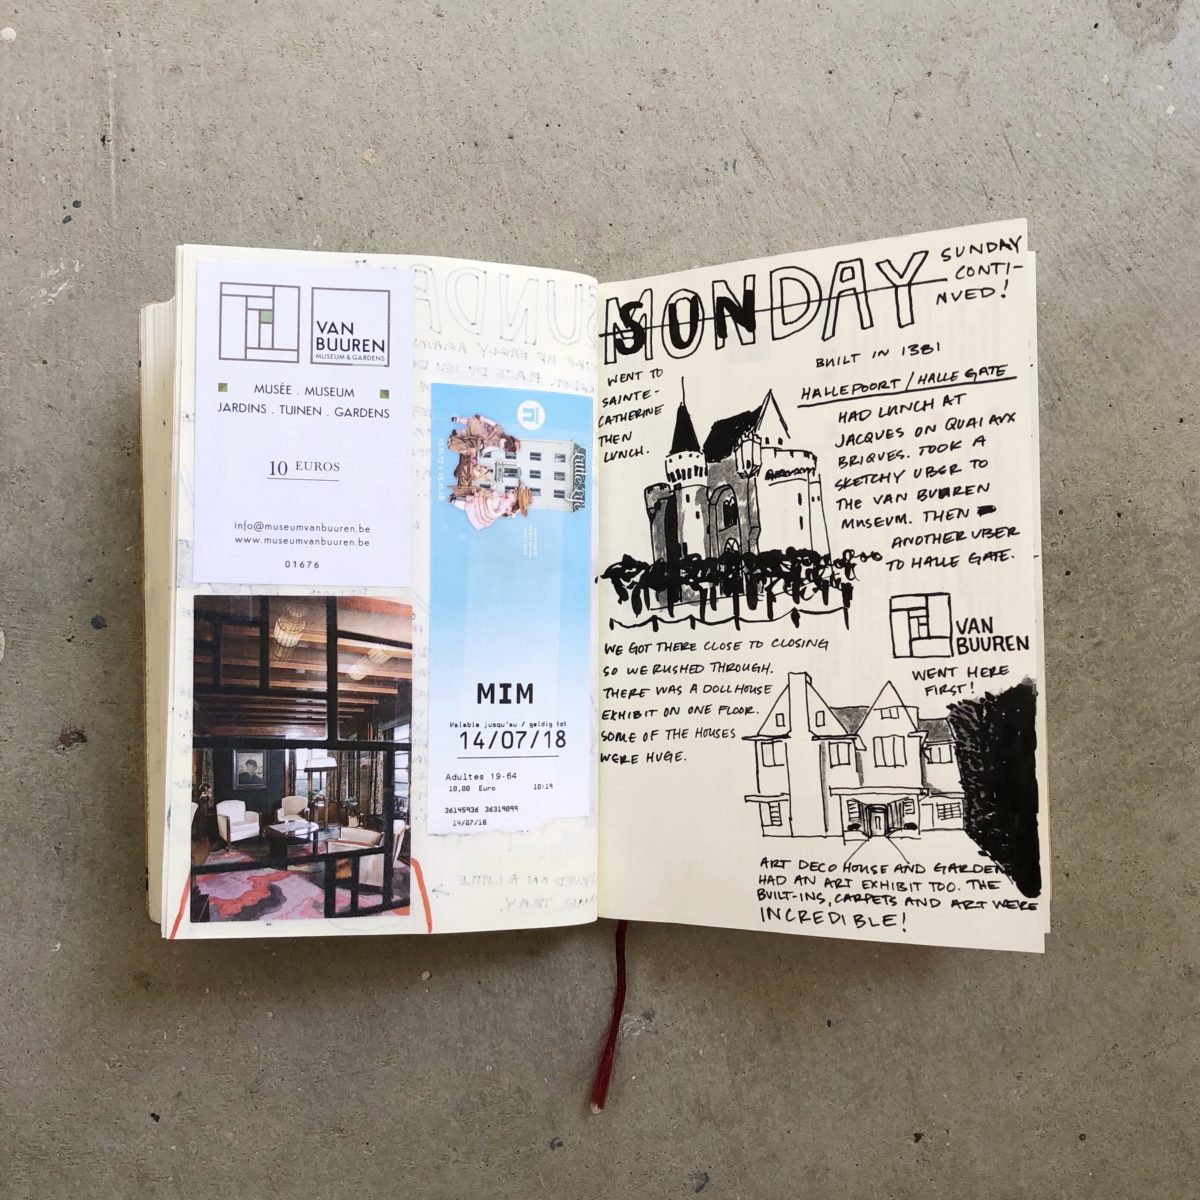 VAN
BUUREN
MUSEUM & GARDENS
MUSÉE . MUSEUM
JARDINS . TUINEN . GARDENS
10 EUROS
info@museumvanbuuren.be
www.museumvanbuuren.be
01676
MIM
Valable jusqu'au / geldig tot
14/07/18
Adultes 19-64
10,00 Euro 10:19
36145936 36319099
14/07/18
MONDAY
SUN
SUNDAY
CONTI-
NUED!
WENT TO
SAINTE-
CATHERINE
THEN
LUNCH.
BUILT IN 1381
HALLEPOORT / HALLE GATE
HAD LUNCH AT
JACQUES ON QUAI AUX
BRIQUES. TOOK A
SKETCHY UBER TO
THE VAN BUUREN
MUSEUM. THEN
ANOTHER UBER
TO HALLE GATE.
WE GOT THERE CLOSE TO CLOSING
SO WE RUSHED THROUGH.
THERE WAS A DOLLHOUSE
EXHIBIT ON ONE FLOOR.
SOME OF THE HOUSES
WERE HUGE.
VAN
BUUREN
WENT HERE
FIRST!
ART DECO HOUSE AND GARDEN
HAD AN ART EXHIBIT TOO. THE
BUILT-INS, CARPETS AND ART WERE
INCREDIBLE!